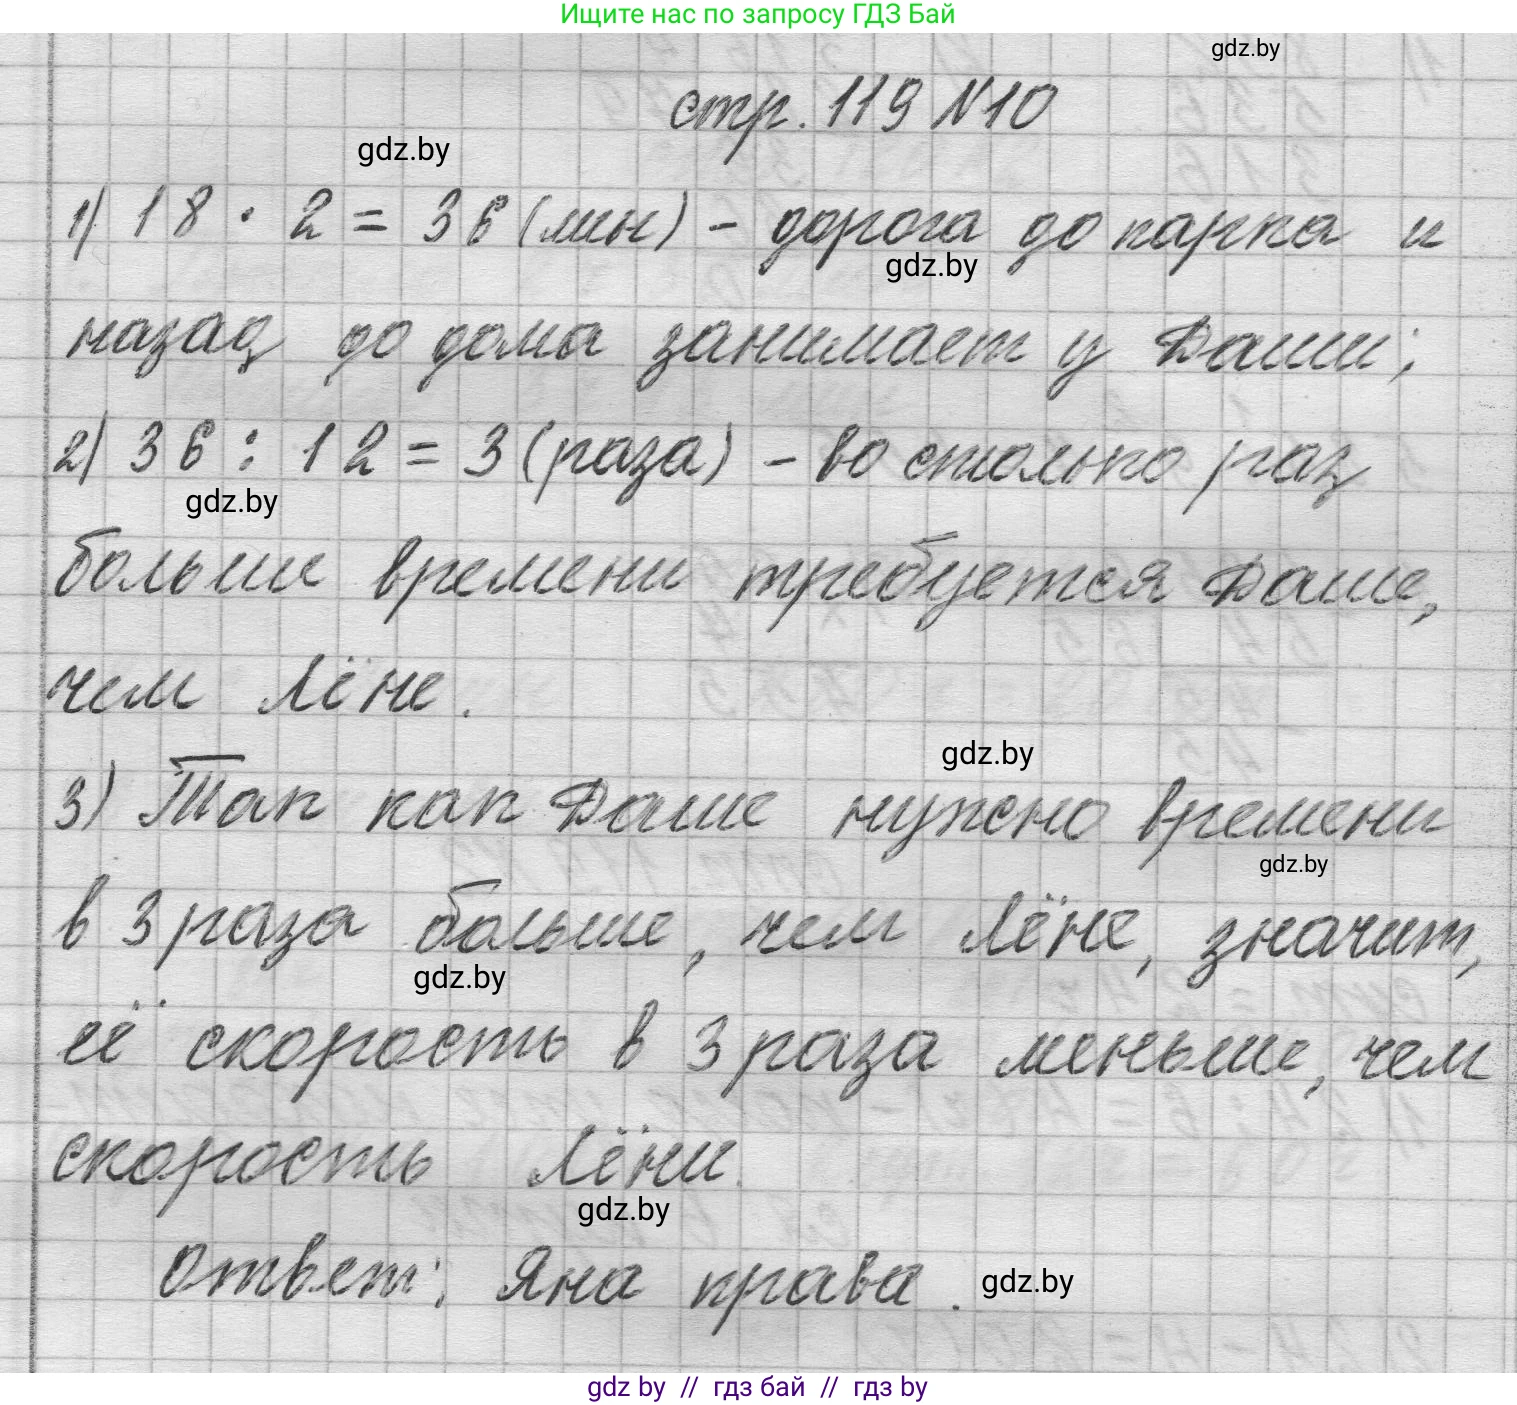 Ищите нас по запросу ГДЗ Бай
gdz.by
стр. 119 №10
gdz.by
1) 18 · 2 = 36 (мин) - дорога до парка и
gdz.by
назад до дома занимает у Даши;
2) 36 : 12 = 3 (раза) - во столько раз
gdz.by
больше времени требуется Даше,
чем Лёне.
gdz.by
3) Так как Даше нужно времени
gdz.by
в 3 раза больше, чем Лёне, значит,
gdz.by
её скорость в 3 раза меньше, чем
скорость Лёни.
gdz.by
Ответ: Яна права.
gdz.by
gdz by // гдз бай // гдз by